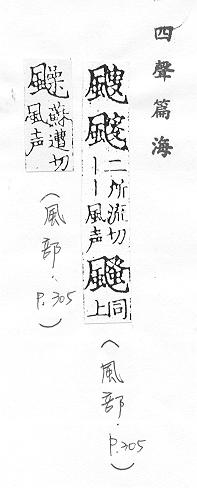 四聲篇海
颼 二所流切
丨丨風声
颾 同上
(風部.P.305)
蘇遭切
風声
(風部.P.305)